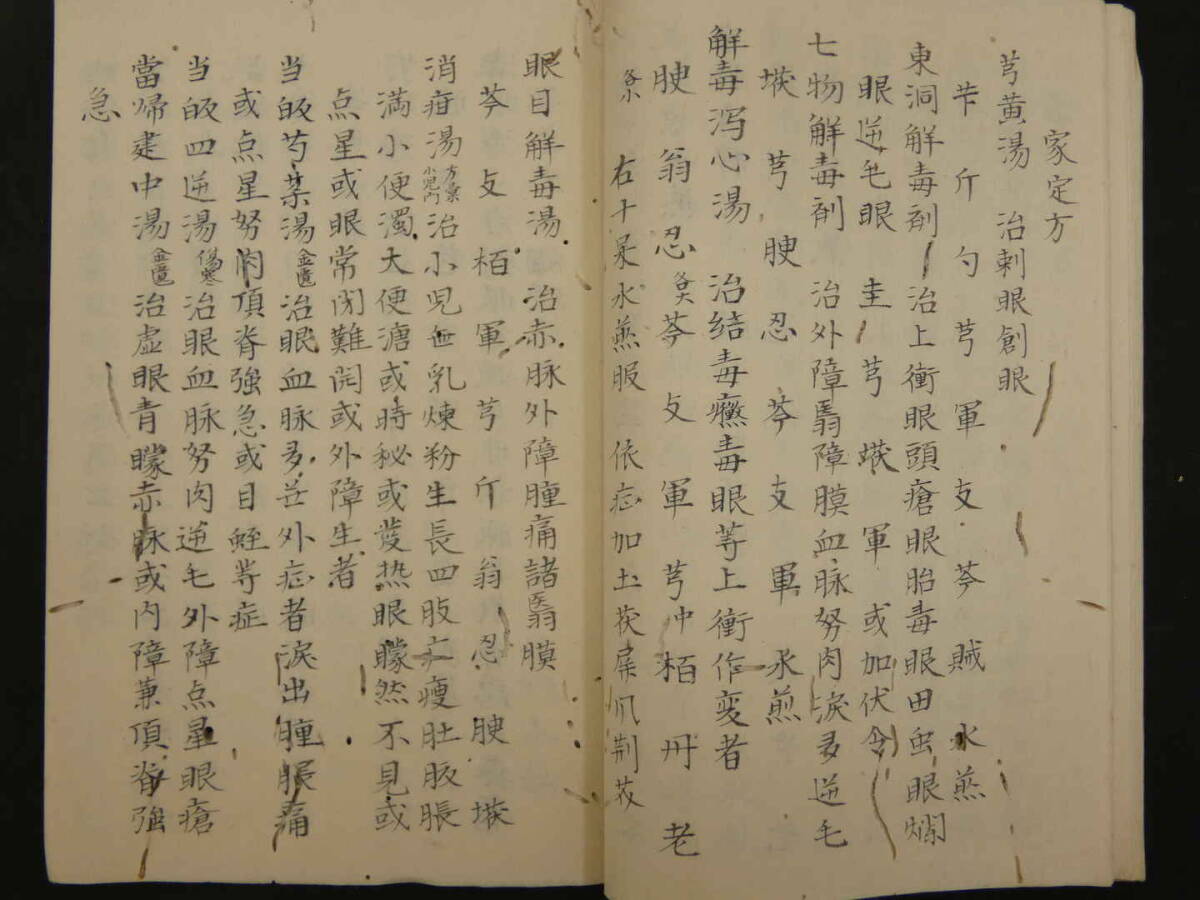 家定方
芎黄湯 治剌眼創眼
芐 斤 勺 芎 軍 支 芩 賊 水煎
東洞解毒剤 治上衝眼頭瘡眼胎毒眼田虫眼爛
眼逆毛眼 圭 芎 軍 或加伏令
七物解毒剤 治外障翳障膜血脉努肉淚多逆毛
芎 腴 忍 芩 支 軍 水煎
解毒泻心湯 治结毒癥毒眼等上衝作変者
腴 翁 忍 各大 芩 支 軍 芎 冲 栢 丹 老
各小 右十味水煎服 依症加土茯 荆芥
眼目解毒湯 治赤脉外障腫痛諸翳膜
芩 支 栢 軍 芎 斤 翁 忍 腴
消疳湯 方彙小児門 治小児無乳煉粉生長四肢瘦肚腹脹
満小便濁大便溏或時秘或发热眼矇然不見或
点星或眼常閉難開或外障生者
当皈芍薬湯 金匱 治眼血脉多芒外症者淚出腫脹痛
或点星努肉頂脊強急或目蛭等症
当皈四逆湯 傷寒 治眼血脉努肉逆毛外障点星眼瘡
當帰建中湯 金匱 治虚眼青矇赤脉或内障兼頂脊強
急